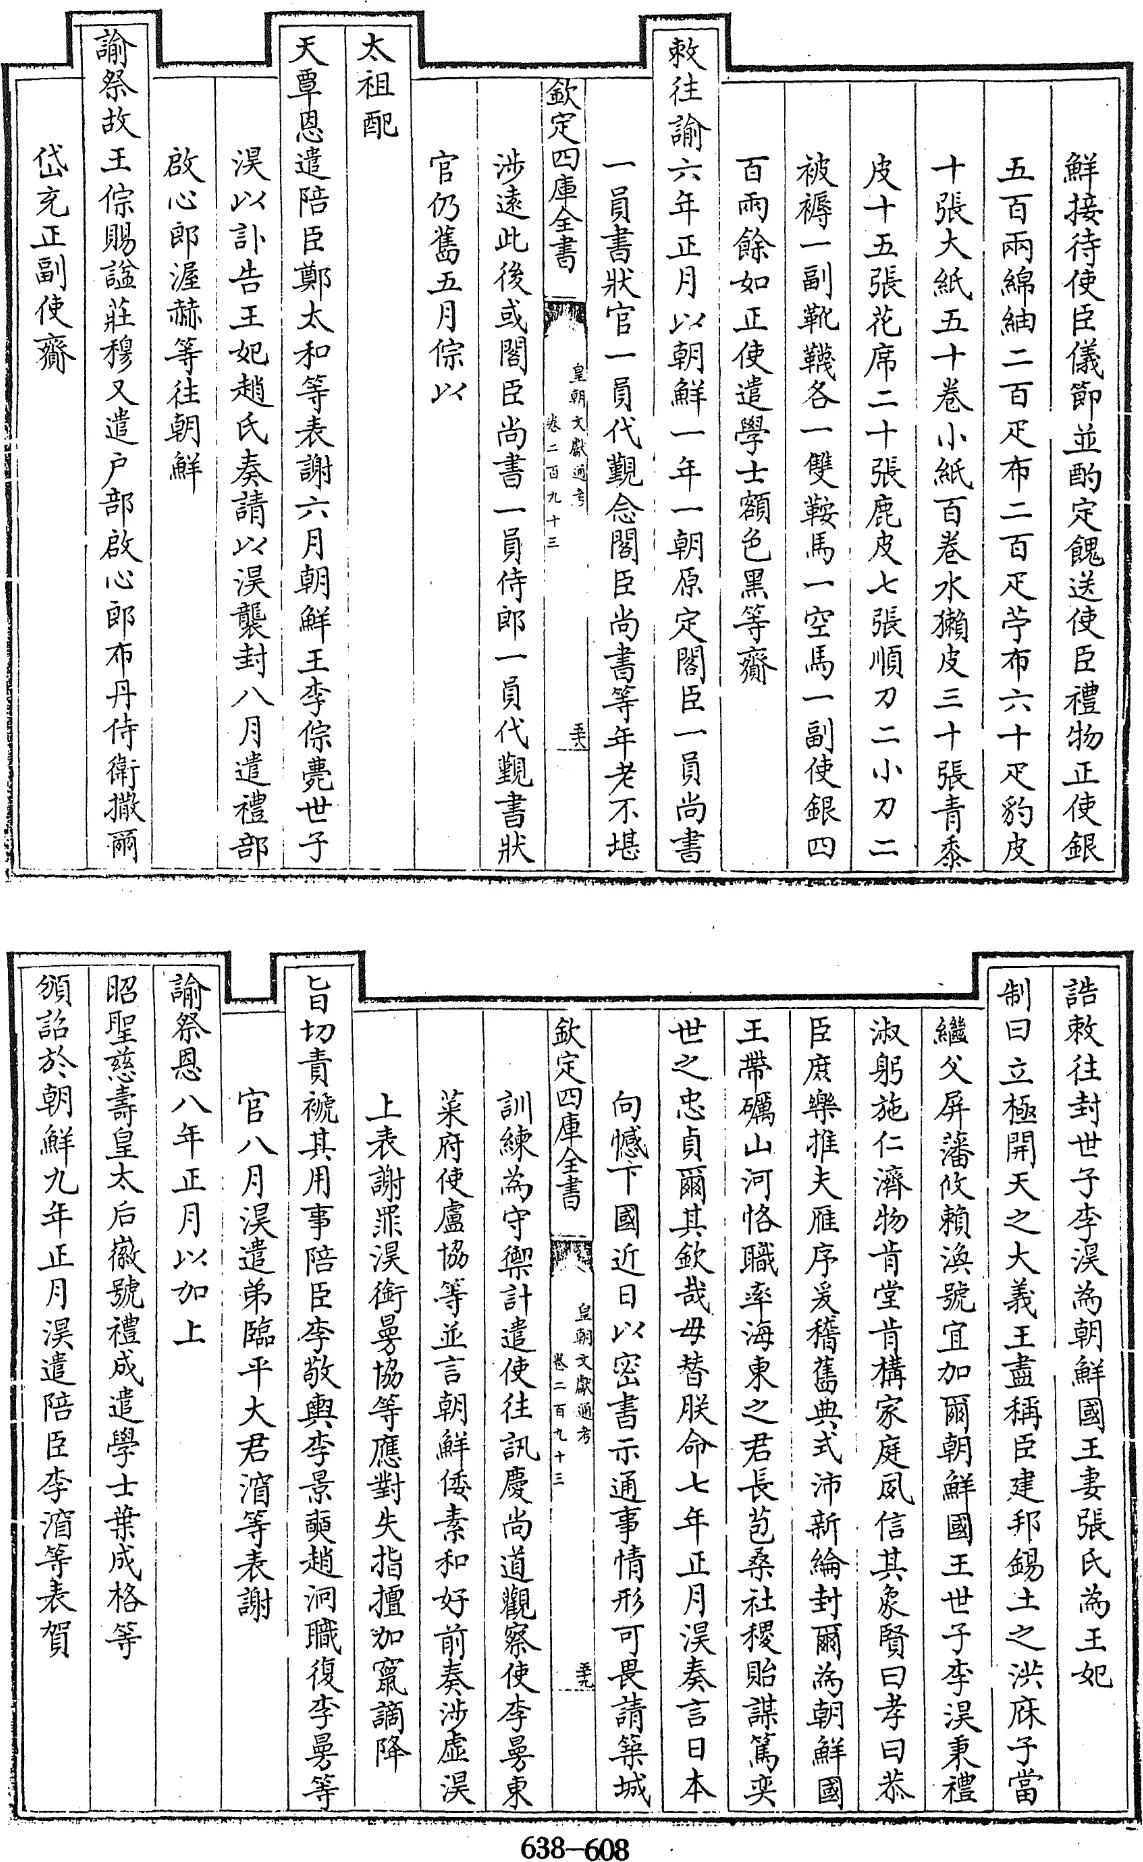 鮮接待使臣儀節並酌定餽送使臣禮物正使銀
五百兩綿紬二百疋布二百疋苧布六十疋豹皮
十張大紙五十卷小紙百卷水獺皮三十張青黍
皮十五張花席二十張鹿皮七張順刀二小刀二
被褥一副靴韈各一雙鞍馬一空馬一副使銀四
百兩餘如正使遣學士額色黑等齎
敕往諭六年正月以朝鮮一年一朝原定閣臣一員尚書
一員書狀官一員代覲念閣臣尚書等年老不堪
欽定四庫全書
皇朝文獻通考
卷二百九十三
五十八
涉遠此後或閣臣尚書一員侍郎一員代覲書狀
官仍舊五月倧以
太祖配
天覃恩遣陪臣鄭太和等表謝六月朝鮮王李倧薨世子
淏以訃告王妃趙氏奏請以淏襲封八月遣禮部
啟心郎渥赫等往朝鮮
諭祭故王倧賜諡莊穆又遣户部啟心郎布丹侍衛撒爾
岱充正副使齎
誥敕往封世子李淏為朝鮮國王妻張氏為王妃
制曰立極開天之大義王盡稱臣建邦錫土之洪庥子當
繼父屏藩攸賴渙號宜加爾朝鮮國王世子李淏秉禮
淑躬施仁濟物肯堂肯構家庭夙信其象賢曰孝曰恭
臣庶樂推夫雁序爰稽舊典式沛新綸封爾為朝鮮國
王帶礪山河恪職率海東之君長苞桑社稷貽謀篤奕
世之忠貞爾其欽哉毋替朕命七年正月淏奏言日本
向憾下國近日以密書示通事情形可畏請築城
欽定四庫全書
皇朝文獻通考
卷二百九十三
五十九
訓練為守禦計遣使往訊慶尚道觀察使李曼東
菜府使盧協等並言朝鮮倭素和好前奏涉虛淏
上表謝罪淏銜曼協等應對失指擅加竄謫降
旨切責褫其用事陪臣李敬輿李景奭趙洞職復李曼等
官八月淏遣弟臨平大君㴭等表謝
諭祭恩八年正月以加上
昭聖慈壽皇太后徽號禮成遣學士葉成格等
頒詔於朝鮮九年正月淏遣陪臣李㴭等表賀
638-608